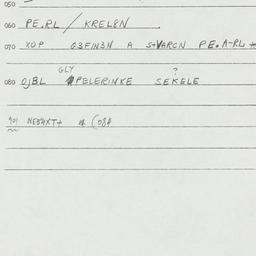 050
060 PE.RL / KREL8N
070 XOP G3FIN3N A S+VARCN PE.A-RL
GLY ?
080 OJBL PELERINKE SEKELE
901 NEBAXT+